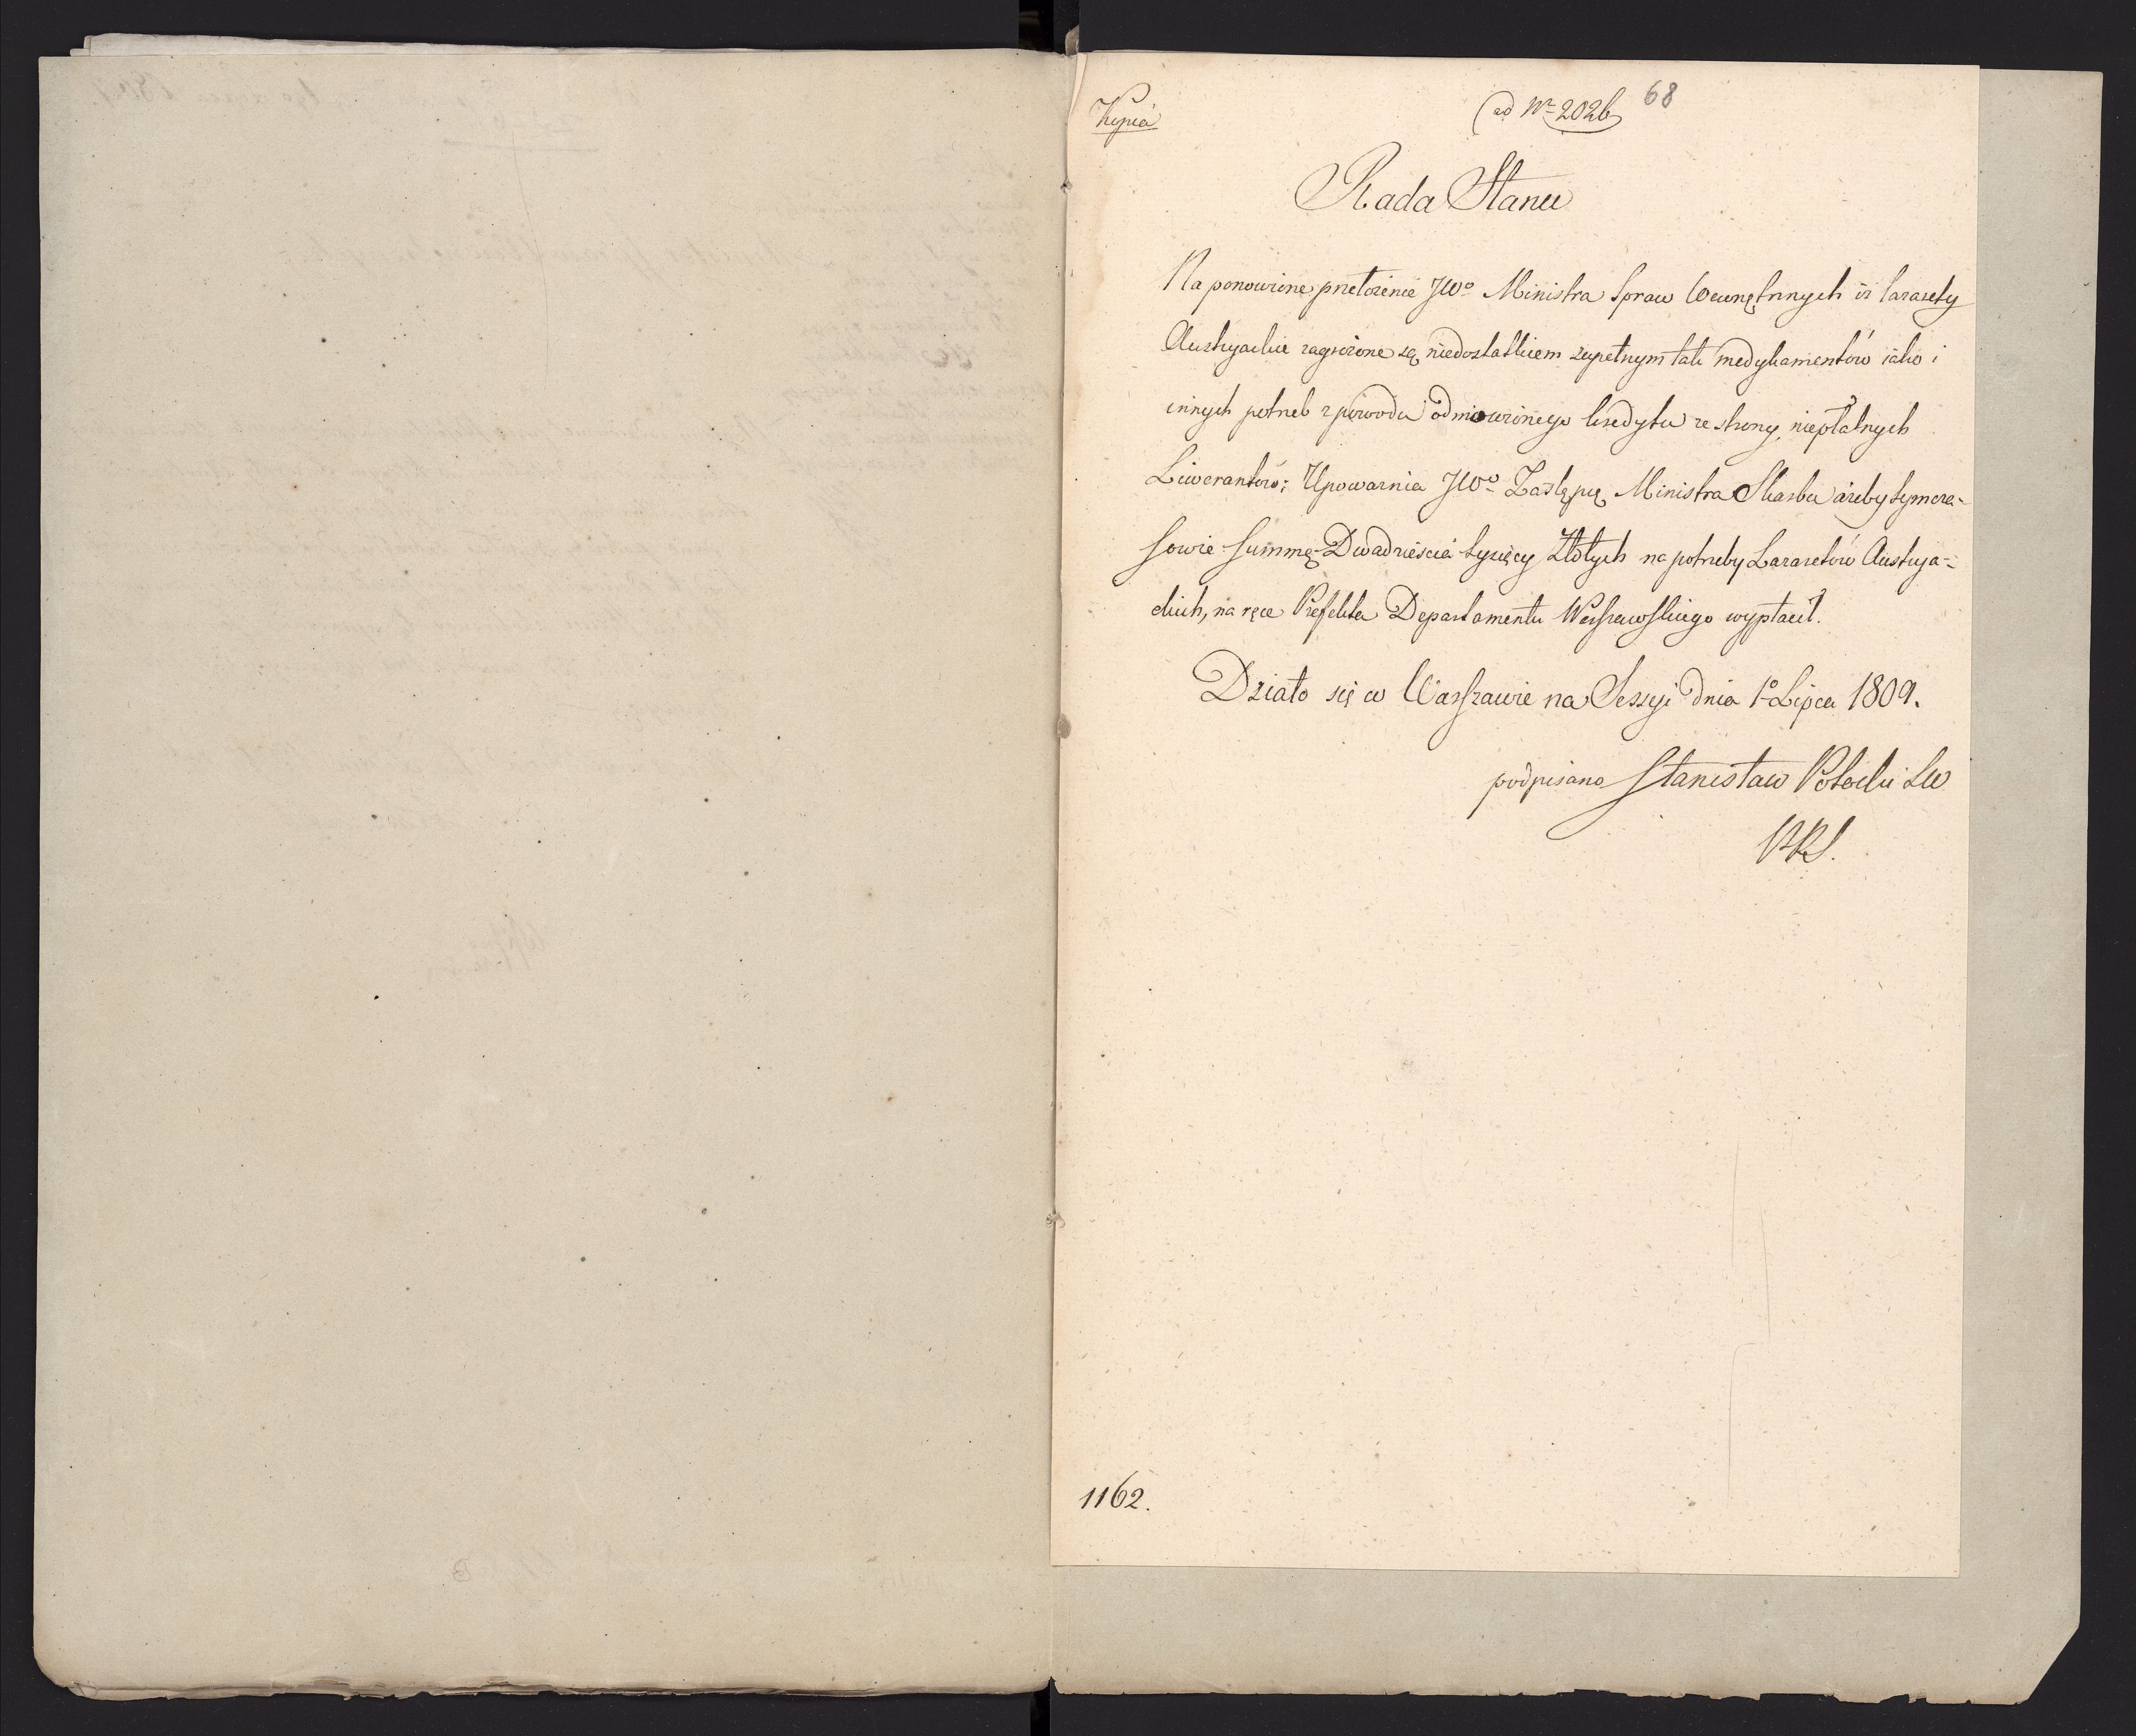 Kopia
ad Nr 2026
68
Rada Stanu
Na ponowione przełożenie JWo Ministra Spraw Wewnętrznych iż lazarety
Austryackie zagrożone są niedostatkiem zupełnym tak medykamentów iako i
innych potrzeb z powodu odmówionego kredytu ze strony niepłatnych
Liwerantów; Upoważnia JWo Zastępcę Ministra Skarbu ażeby tymcza-
sowie summę Dwadzieścia tysięcy Złotych na potrzeby Lazaretów Austrya-
ckich, na ręce Prefekta Departamentu Warszawskiego wypłacił.
Działo się w Warszawie na Sessyi dnia 1o Lipca 1809.
podpisano Stanisław Potocki
PRS.
1162.